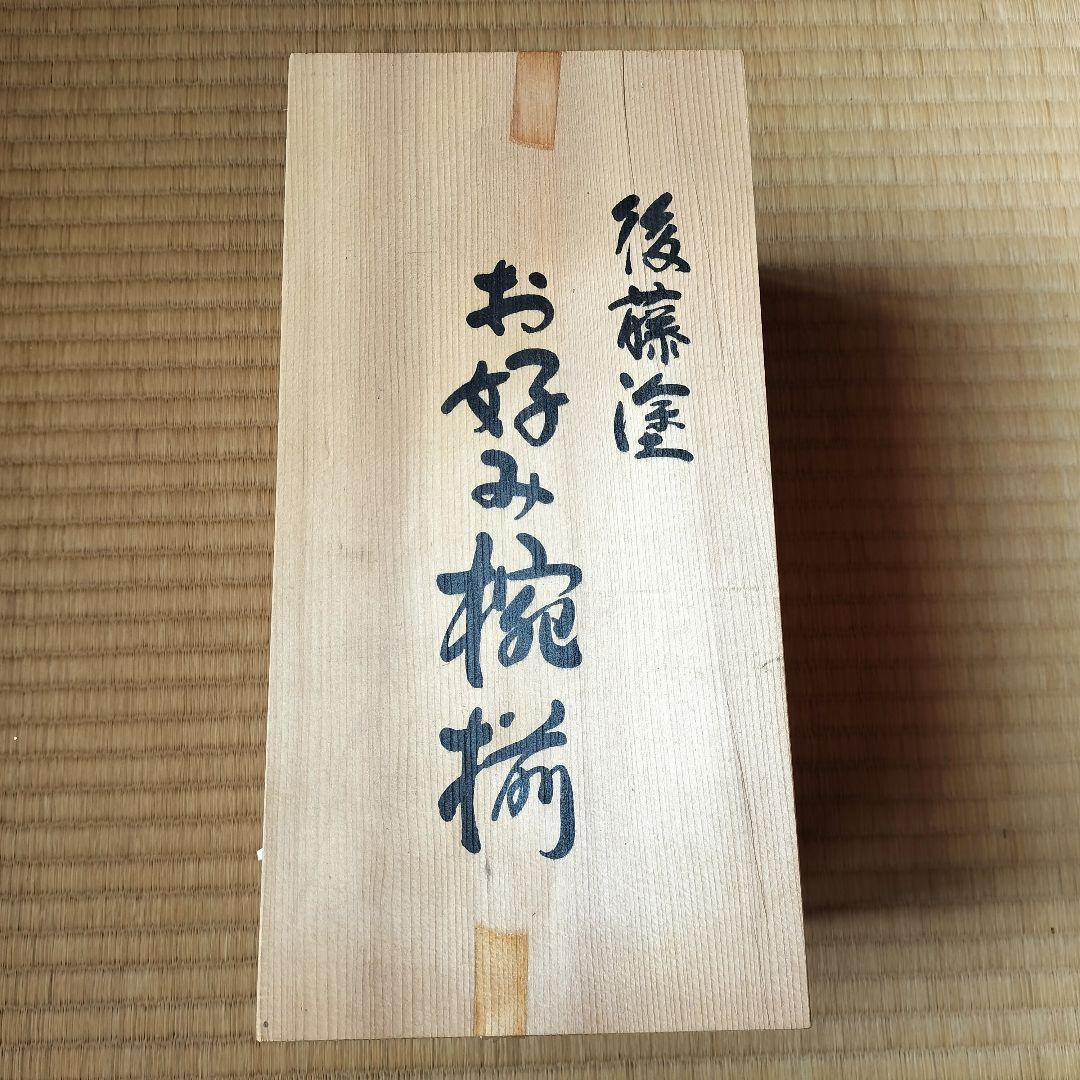 後藤塗
お好み椀揃